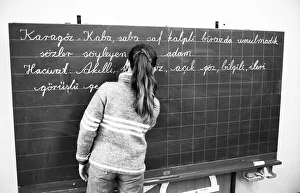 Karagöz. Kaba, saba, saf kalpli biraz da umulmadık
sözler söyleyen adam.
Hacivat. Akıllı, göz, açık göz, bilgili, ileri
görüşlü